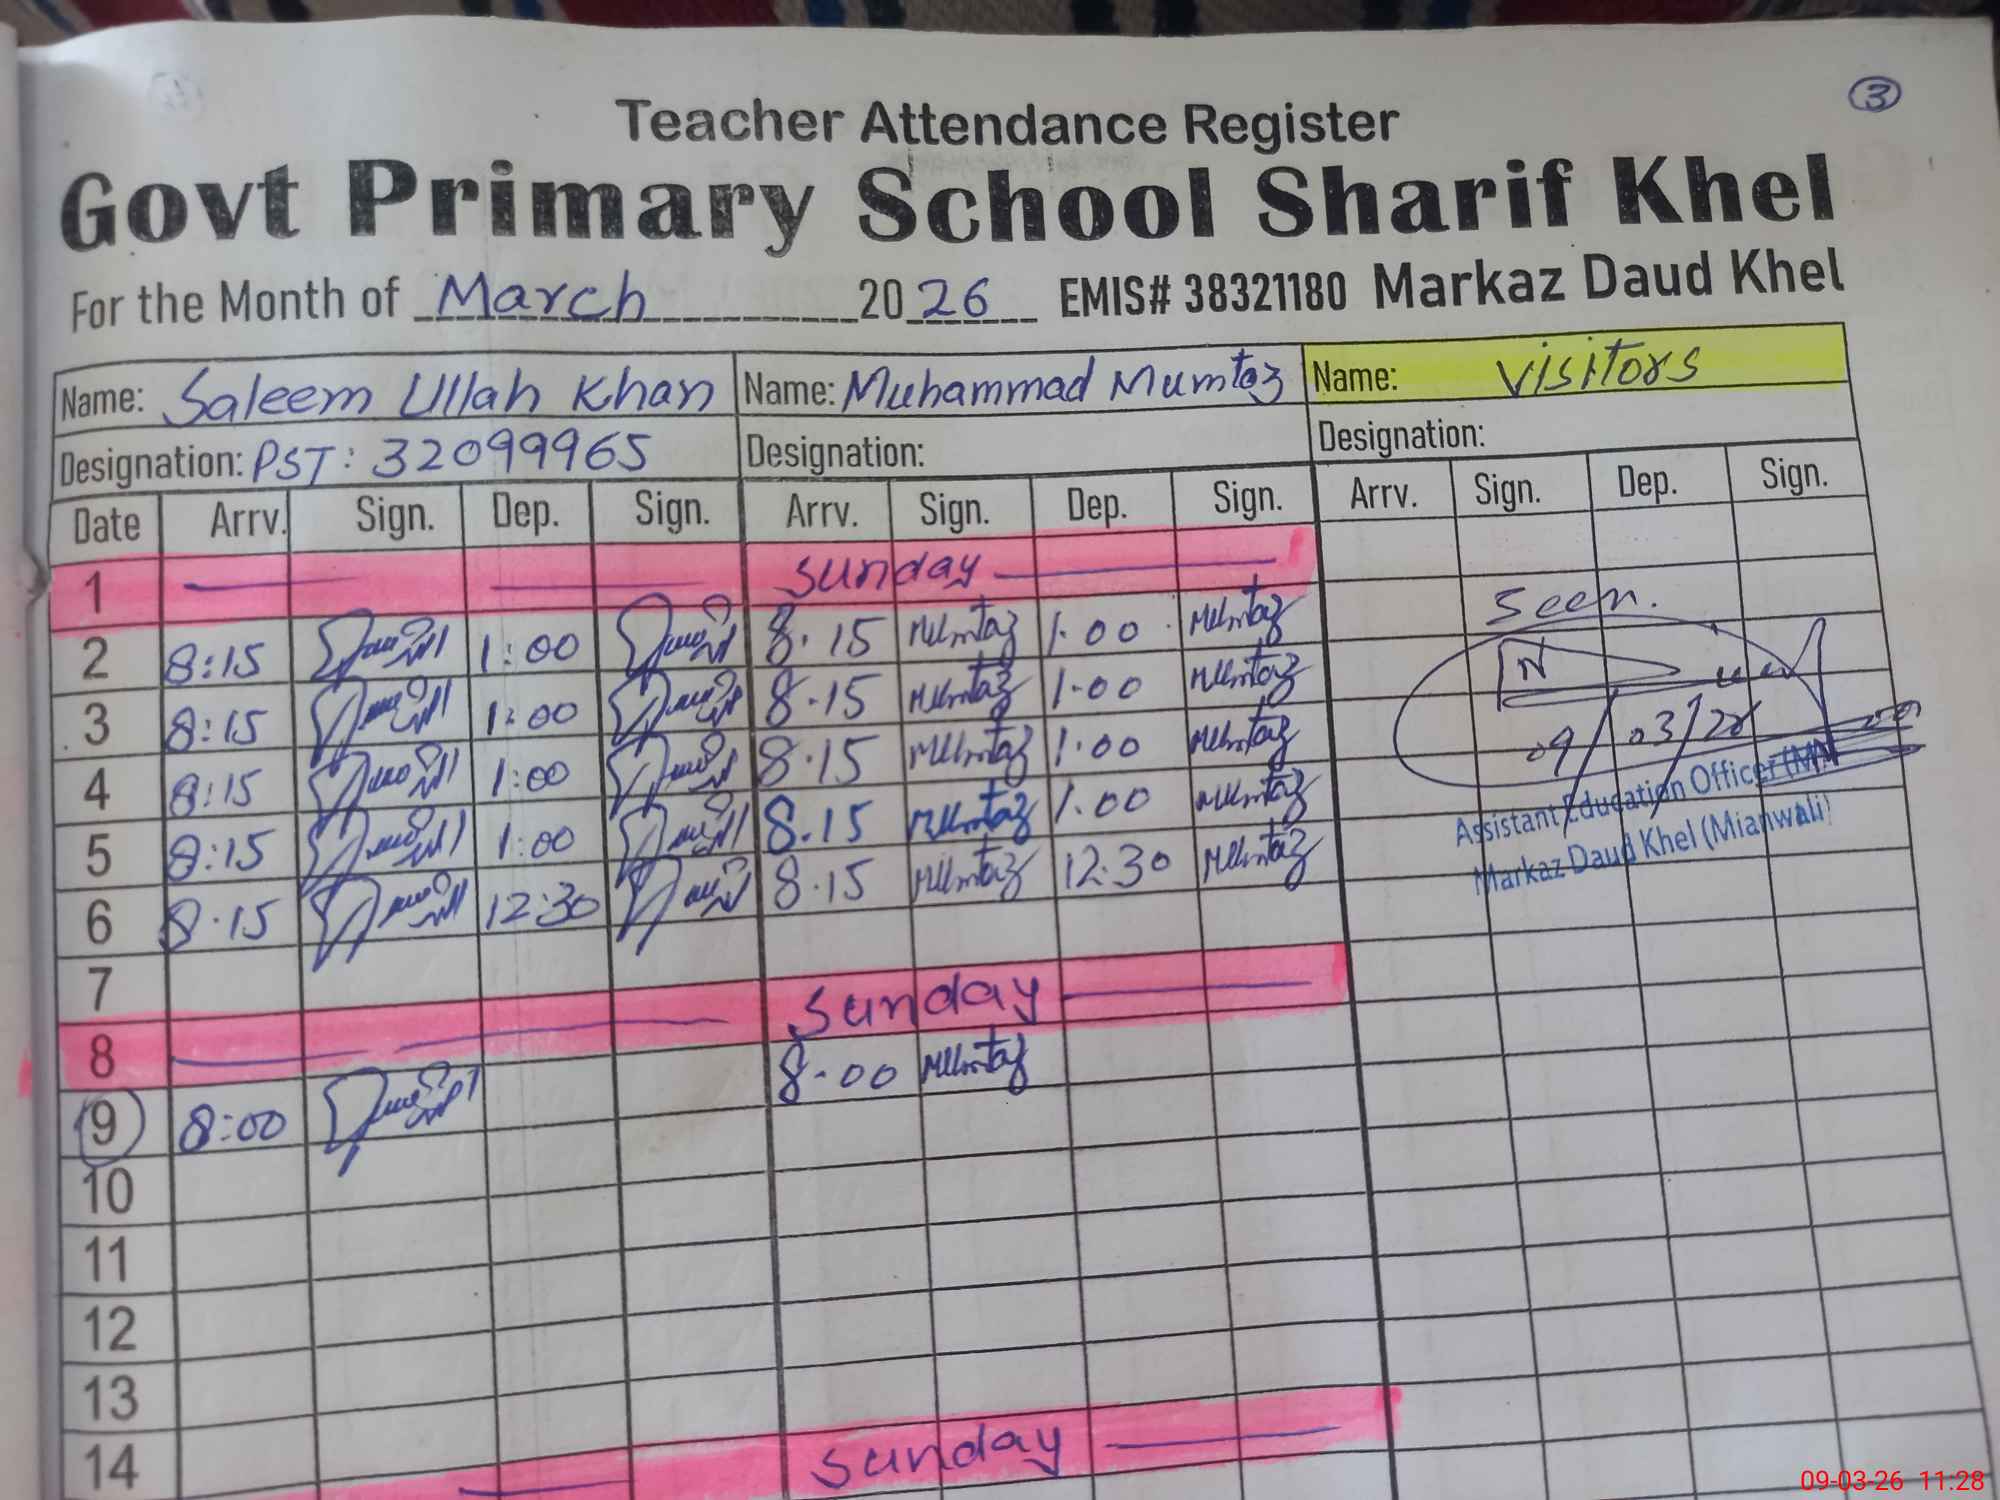 3
Teacher Attendance Register
Govt Primary School Sharif Khel
For the Month of March 2026 EMIS# 38321180 Markaz Daud Khel
Name: Saleem Ullah Khan Name: Muhammad Mumtaz Name: Visitors
Designation: PST: 32099965 Designation: Designation:
Date Arrv. Sign. Dep. Sign. Arrv. Sign. Dep. Sign. Arrv. Sign. Dep. Sign.
1 Sunday
2 8:15 1:00 8.15 Mumtaz 1.00 Mumtaz
3 8:15 1:00 8.15 Mumtaz 1.00 Mumtaz
4 8:15 1:00 8.15 Mumtaz 1.00 Mumtaz
5 8:15 1:00 8.15 Mumtaz 1.00 Mumtaz
6 8.15 12:30 8.15 Mumtaz 12:30 Mumtaz
7
8 Sunday
9 8:00 8.00 Mumtaz
10
11
12
13
14
Sunday
Seen.
09/03/26
Assistant Education Officer
Markaz Daud Khel (Mianwali)
09-03-26 11:28